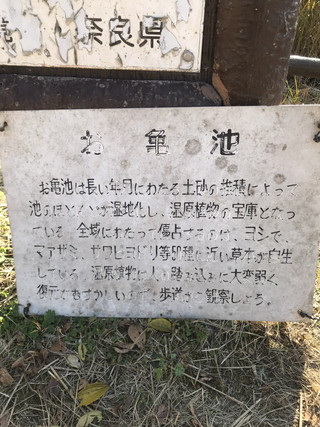 奈良県
お亀池
お亀池は長い年月にわたる土砂の堆積によって
池のほとんどが湿地化し、湿原植物の宝庫となっ
ている。全域にわたって優占するのは、ヨシで
マアザミ、サワヒヨドリ等80種に近い草本が自生
している。湿原植物は人の踏み込みに大変弱く、
復元もむずかしいので歩道から観察しよう。